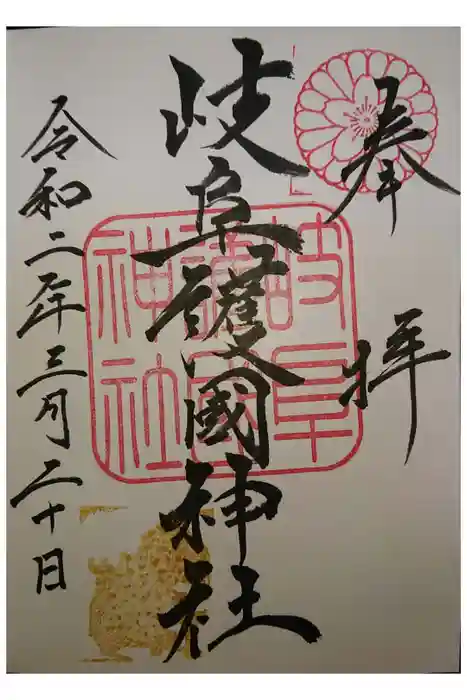 奉拝
岐阜護國神社
令和二年三月二十日
岐阜
護國
神社